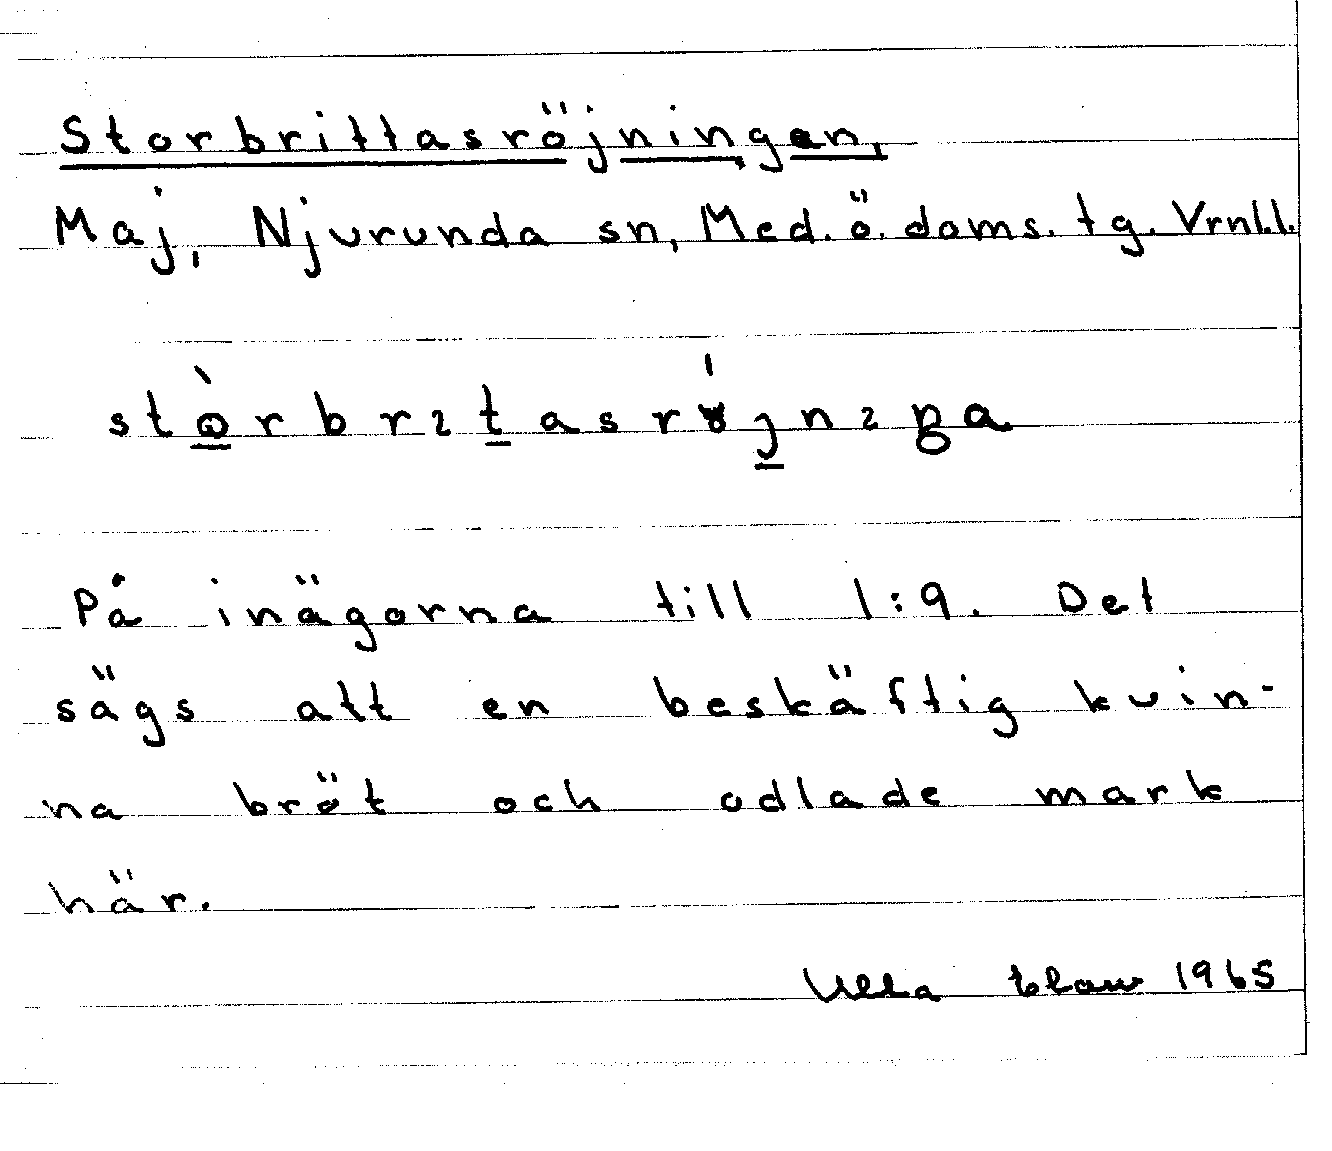 Storbrittasröjningen,
Maj, Njurunda sn, Med. ö. doms. tg. Vrnl.l.
På inägorna till 1:9. Det
sägs att en beskäftig kvin-
na bröt och odlade mark
här.
Ulla 1965